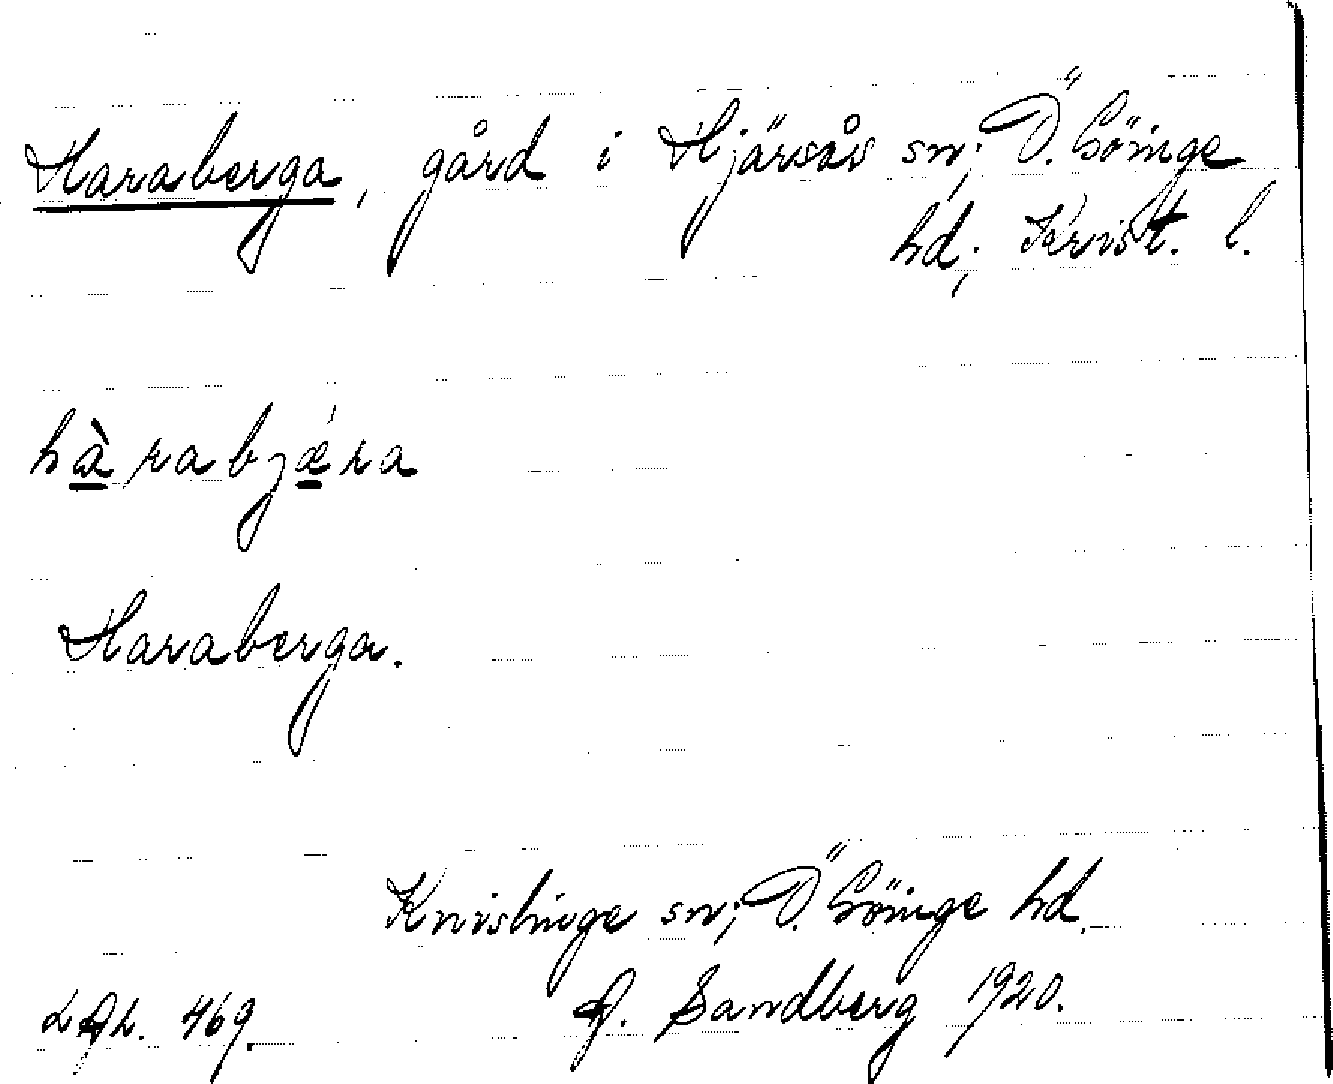 Haraberga, gård i Hjärsås sn; Ö. Göinge
hd; Krist. l.
hàrabjǽra
Haraberga.
Knislinge sn; Ö. Göinge hd.
Sandberg 1920.
469.